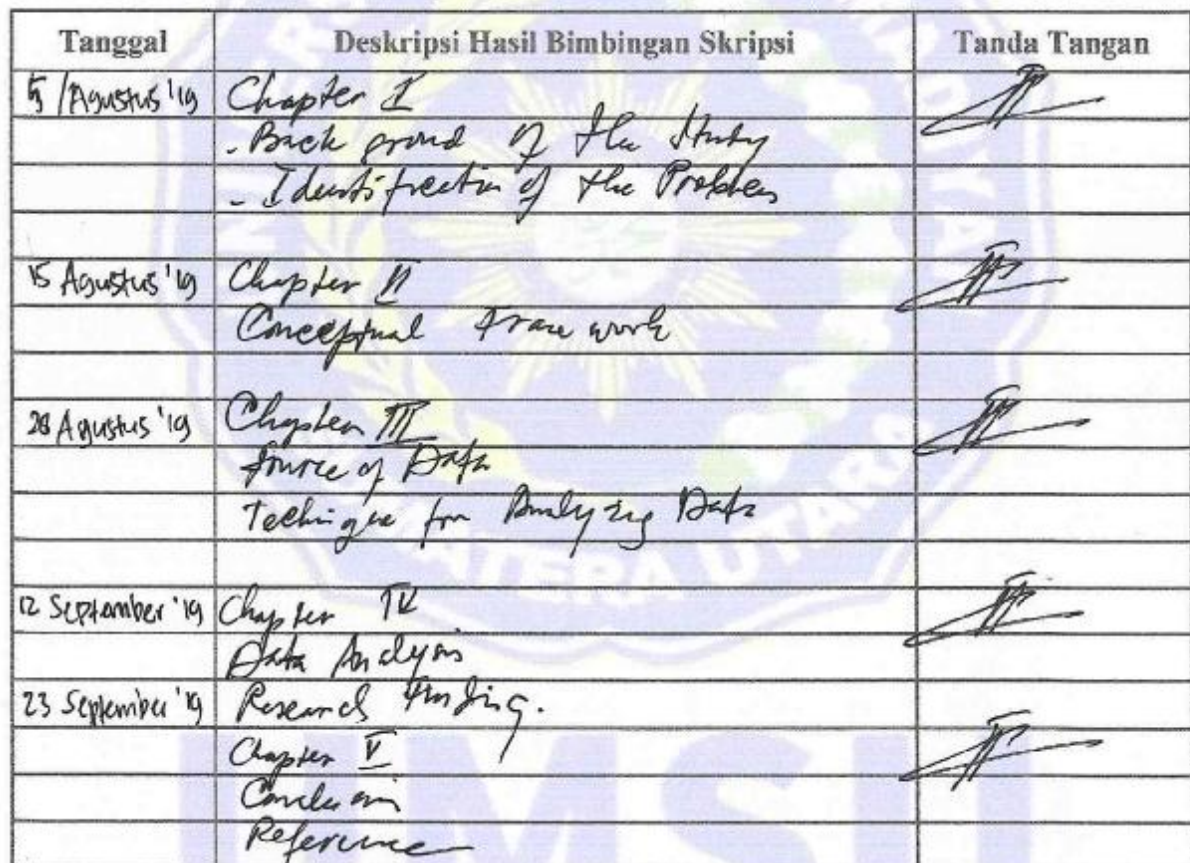 Tanggal Deskripsi Hasil Bimbingan Skripsi Tanda Tangan
5 /Agustus '19 Chapter I
- Back groud of the Study
- Identification of the Problem
15 Agustus '19 Chapter II
Conceptual Frame work
28 Agustus '19 Chapter III
Source of Data
Technique for Analyzing Data
12 September '19 Chapter IV
Data Analysis
23 September '19 Research Finding.
Chapter V
Conclusion
Reference
MATERA UTARA
UMSU